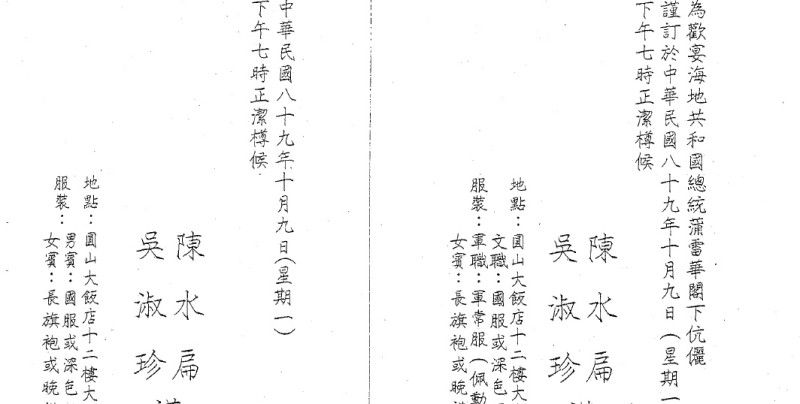 為歡宴海地共和國總統蒲雷華閣下伉儷
謹訂於中華民國八十九年十月九日(星期一
下午七時正潔樽候
陳水扁
吳淑珍
地點：圓山大飯店十二樓大
服裝：軍職：軍常服(佩勳
文職：國服或深色
女賓：長旗袍或晚
中華民國八十九年十月九日(星期一)
下午七時正潔樽候
陳水扁
吳淑珍
地點：圓山大飯店十二樓大
服裝：男賓：國服或深色
女賓：長旗袍或晚